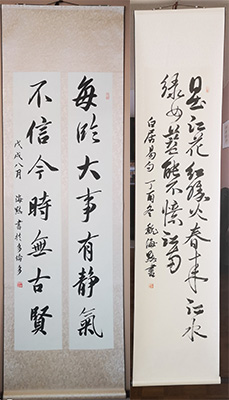 每臨大事有靜氣
不信今時無古賢
戊戌八月 海點書於多倫多
日出江花紅勝火春來江水
綠如藍能不憶江南
白居易句 丁酉冬 海點書